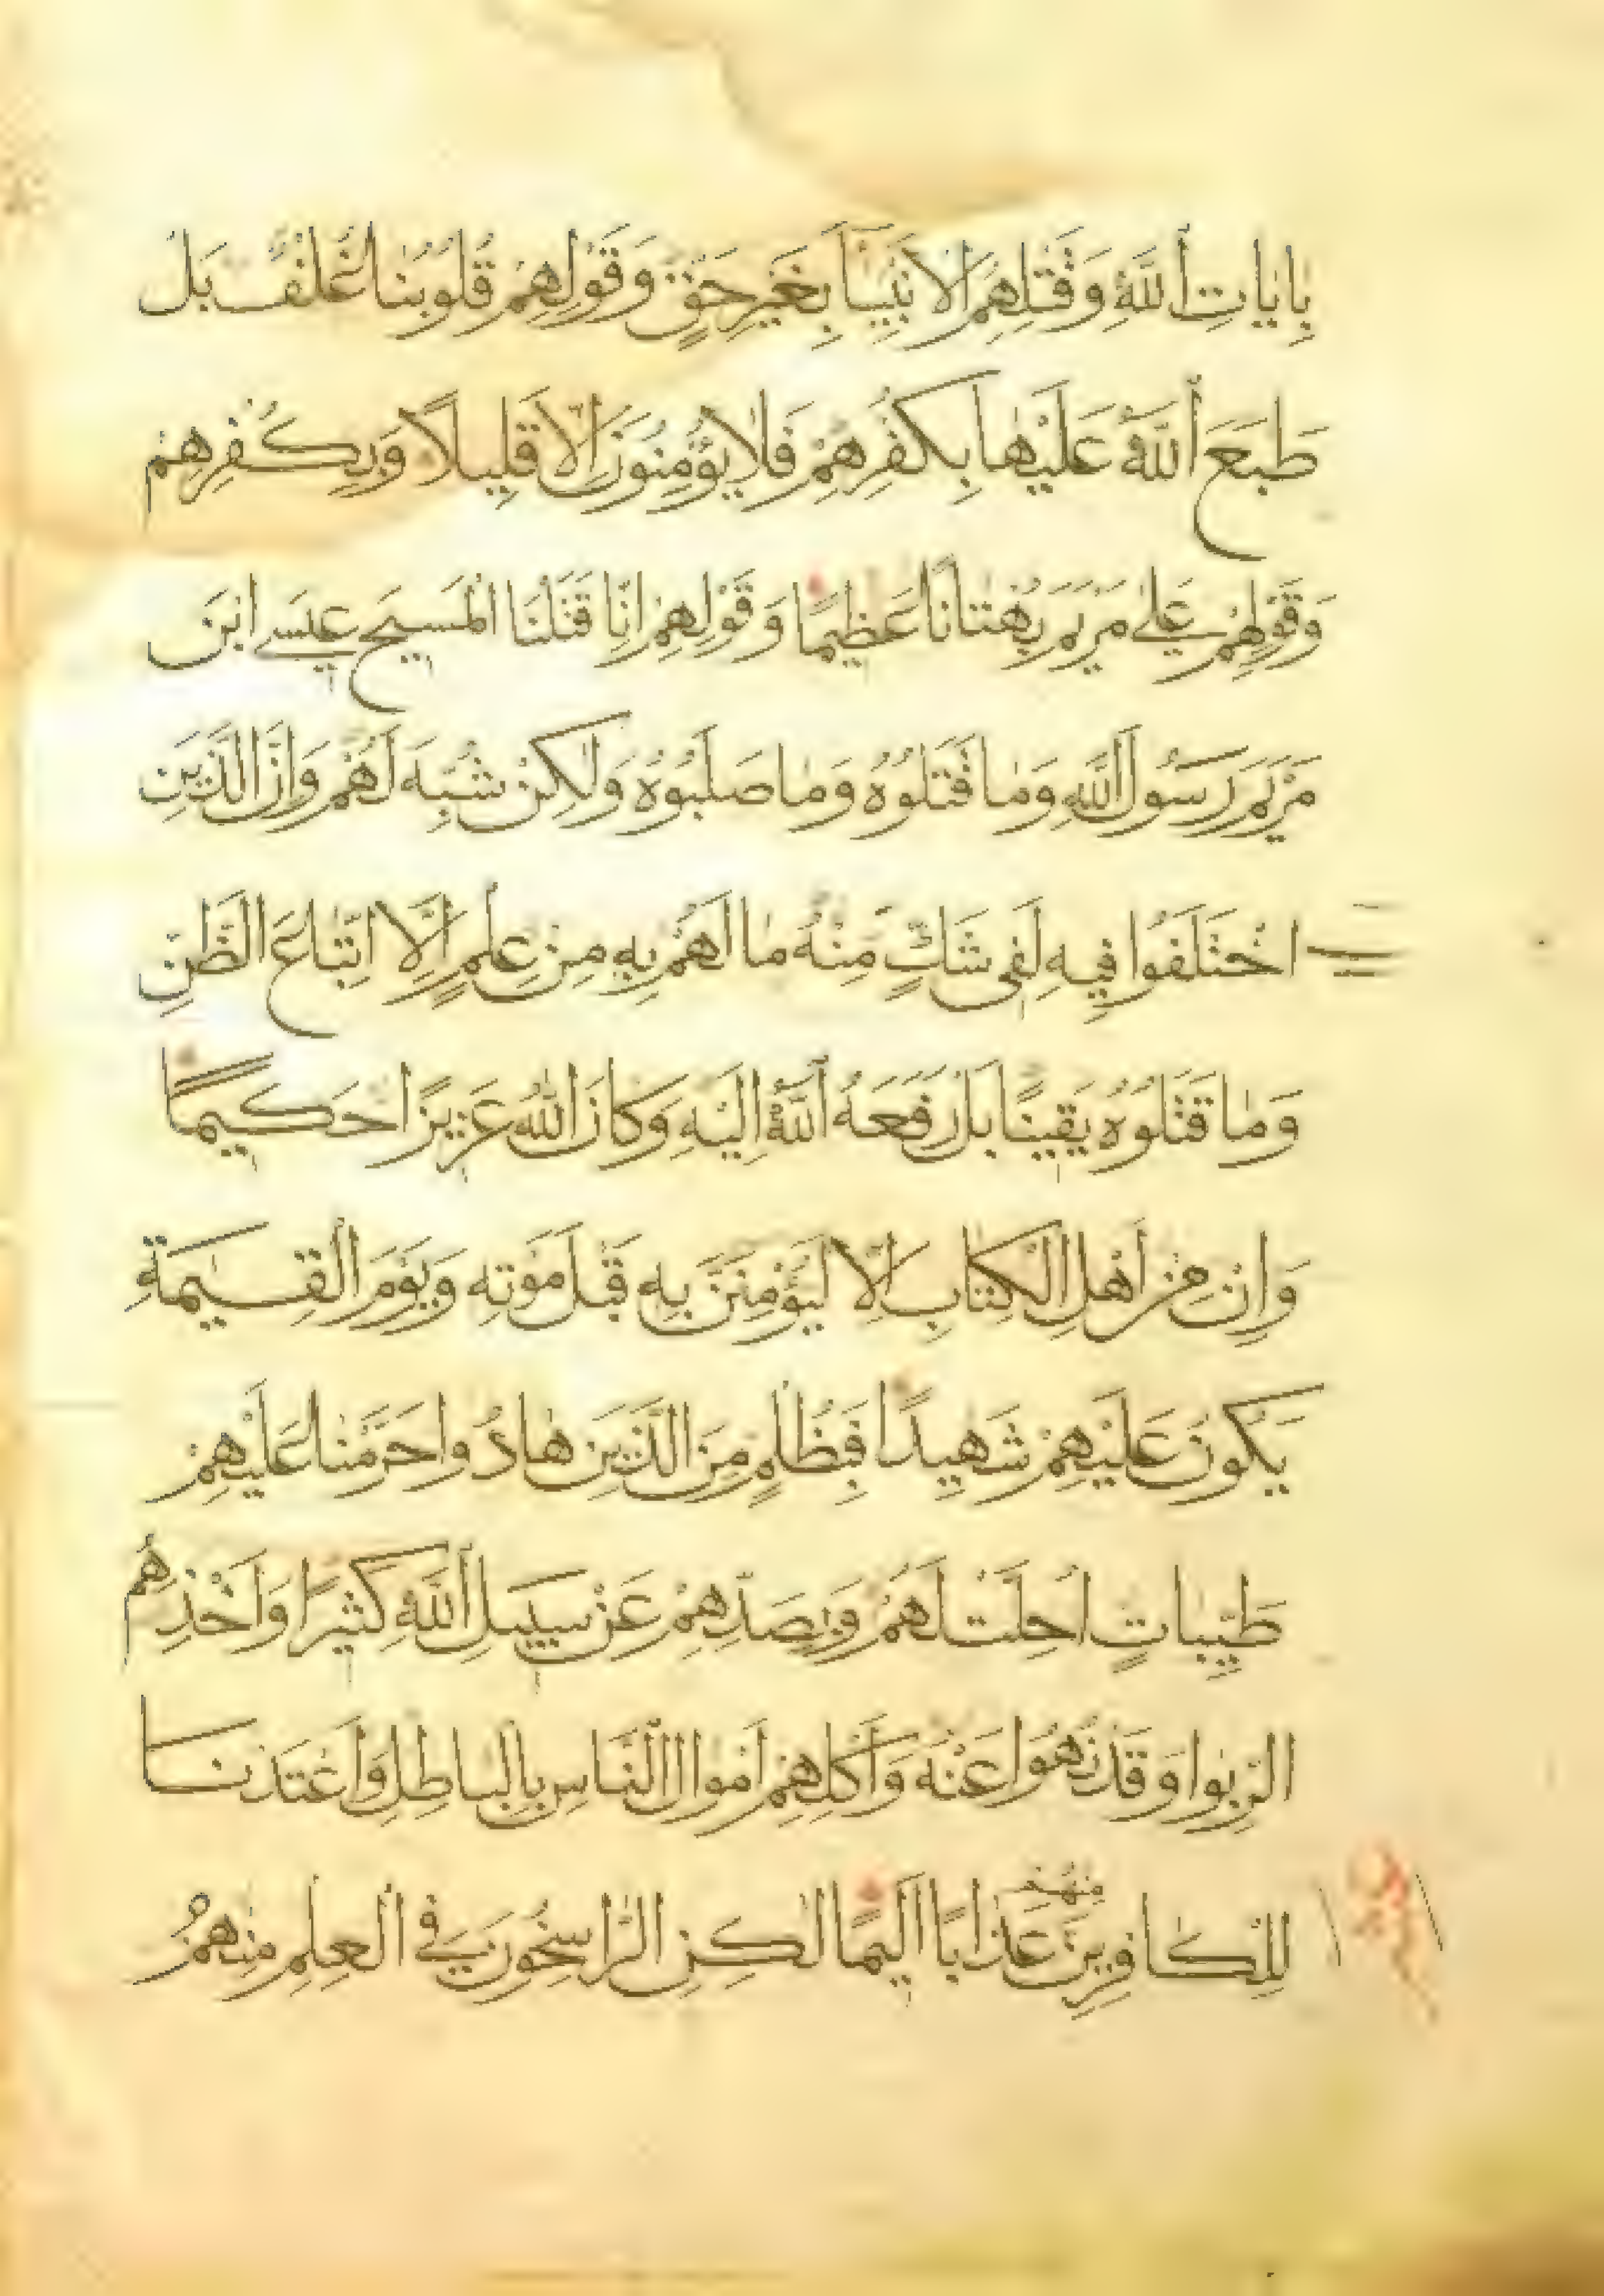 بِاٰيَاتِ اللّٰهِ وَقَتْلِهِمُ الْاَنْبِيَآءَ بِغَيْرِ حَقٍّ وَقَوْلِهِمْ قُلُوبُنَا غُلْفٌ بَلْ
طَبَعَ اللّٰهُ عَلَيْهَا بِكُفْرِهِمْ فَلَا يُؤْمِنُونَ اِلَّا قَلِيلًا وَبِكُفْرِهِمْ
وَقَوْلِهِمْ عَلٰى مَرْيَمَ بُهْتَانًا عَظِيمًا وَقَوْلِهِمْ اِنَّا قَتَلْنَا الْمَسِيحَ عِيسَى ابْنَ
مَرْيَمَ رَسُولَ اللّٰهِ وَمَا قَتَلُوهُ وَمَا صَلَبُوهُ وَلٰكِنْ شُبِّهَ لَهُمْ وَاِنَّ الَّذِينَ
اخْتَلَفُوا فِيهِ لَفِى شَكٍّ مِنْهُ مَا لَهُمْ بِهِ مِنْ عِلْمٍ اِلَّا اتِّبَاعَ الظَّنِّ
وَمَا قَتَلُوهُ يَقِينًا بَلْ رَفَعَهُ اللّٰهُ اِلَيْهِ وَكَانَ اللّٰهُ عَزِيزًا حَكِيمًا
وَاِنْ مِنْ اَهْلِ الْكِتَابِ اِلَّا لَيُؤْمِنَنَّ بِهِ قَبْلَ مَوْتِهِ وَيَوْمَ الْقِيٰمَةِ
يَكُونُ عَلَيْهِمْ شَهِيدًا فَبِظُلْمٍ مِنَ الَّذِينَ هَادُوا حَرَّمْنَا عَلَيْهِمْ
طَيِّبَاتٍ اُحِلَّتْ لَهُمْ وَبِصَدِّهِمْ عَنْ سَبِيلِ اللّٰهِ كَثِيرًا وَاَخْذِهِمُ
الرِّبٰوا وَقَدْ نُهُوا عَنْهُ وَاَكْلِهِمْ اَمْوَالَ النَّاسِ بِالْبَاطِلِ وَاَعْتَدْنَا
لِلْكَافِرِينَ مِنْهُمْ عَذَابًا اَلِيمًا لٰكِنِ الرَّاسِخُونَ فِى الْعِلْمِ مِنْهُمْ